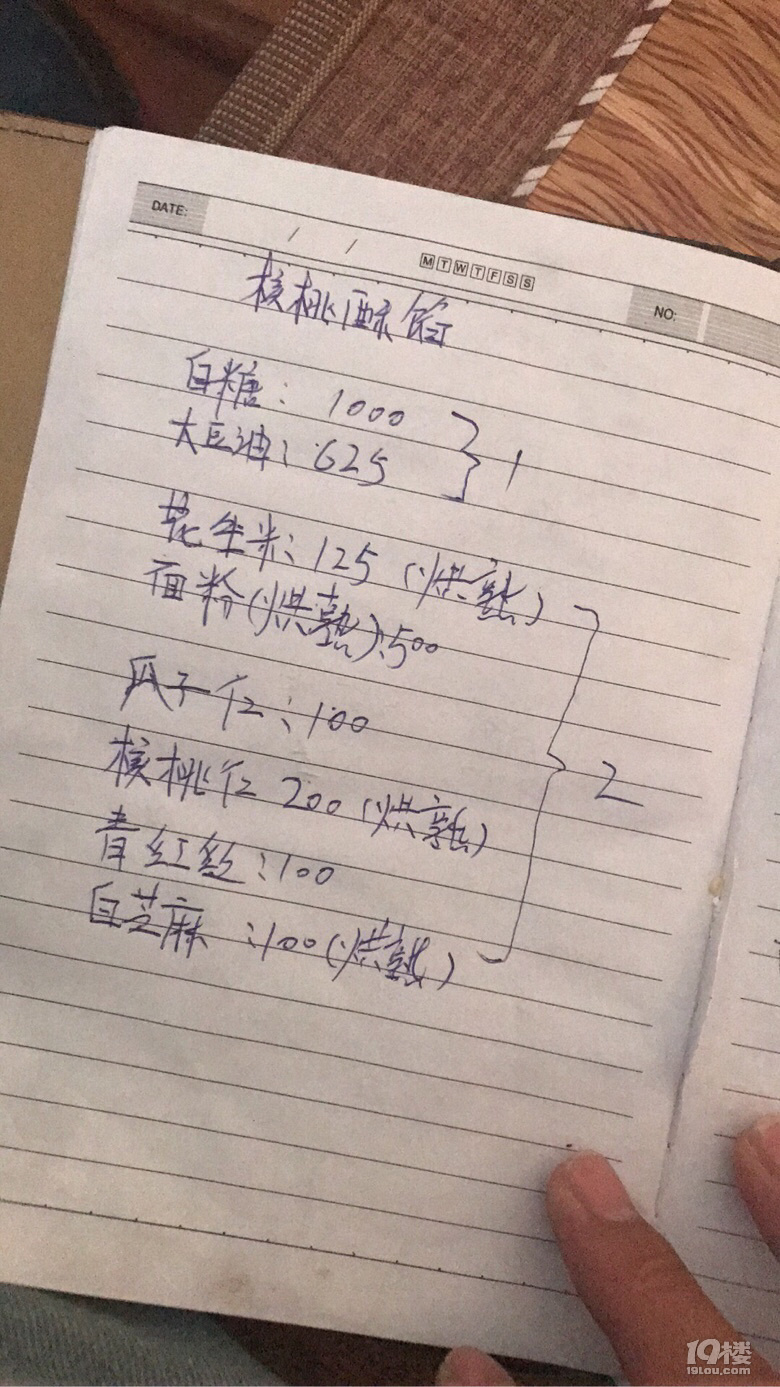 DATE: / / M T W T F S S NO:
核桃酥馅
白糖: 1000
大豆油: 625
} 1
花生米: 125 (烘熟)
面粉(烘熟):500
瓜子仁: 100
核桃仁 200 (烘熟)
青红丝:100
白芝麻:100(烘熟)
} 2
19楼
19lou.com